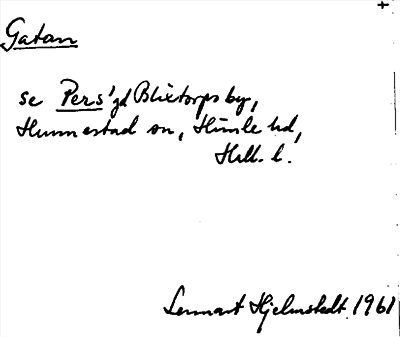 Gatan
se Pers'gd Blixtorps by,
Hunnestad sn, Himle hd,
Hall. l.
Lennart Hjelmstedt 1961